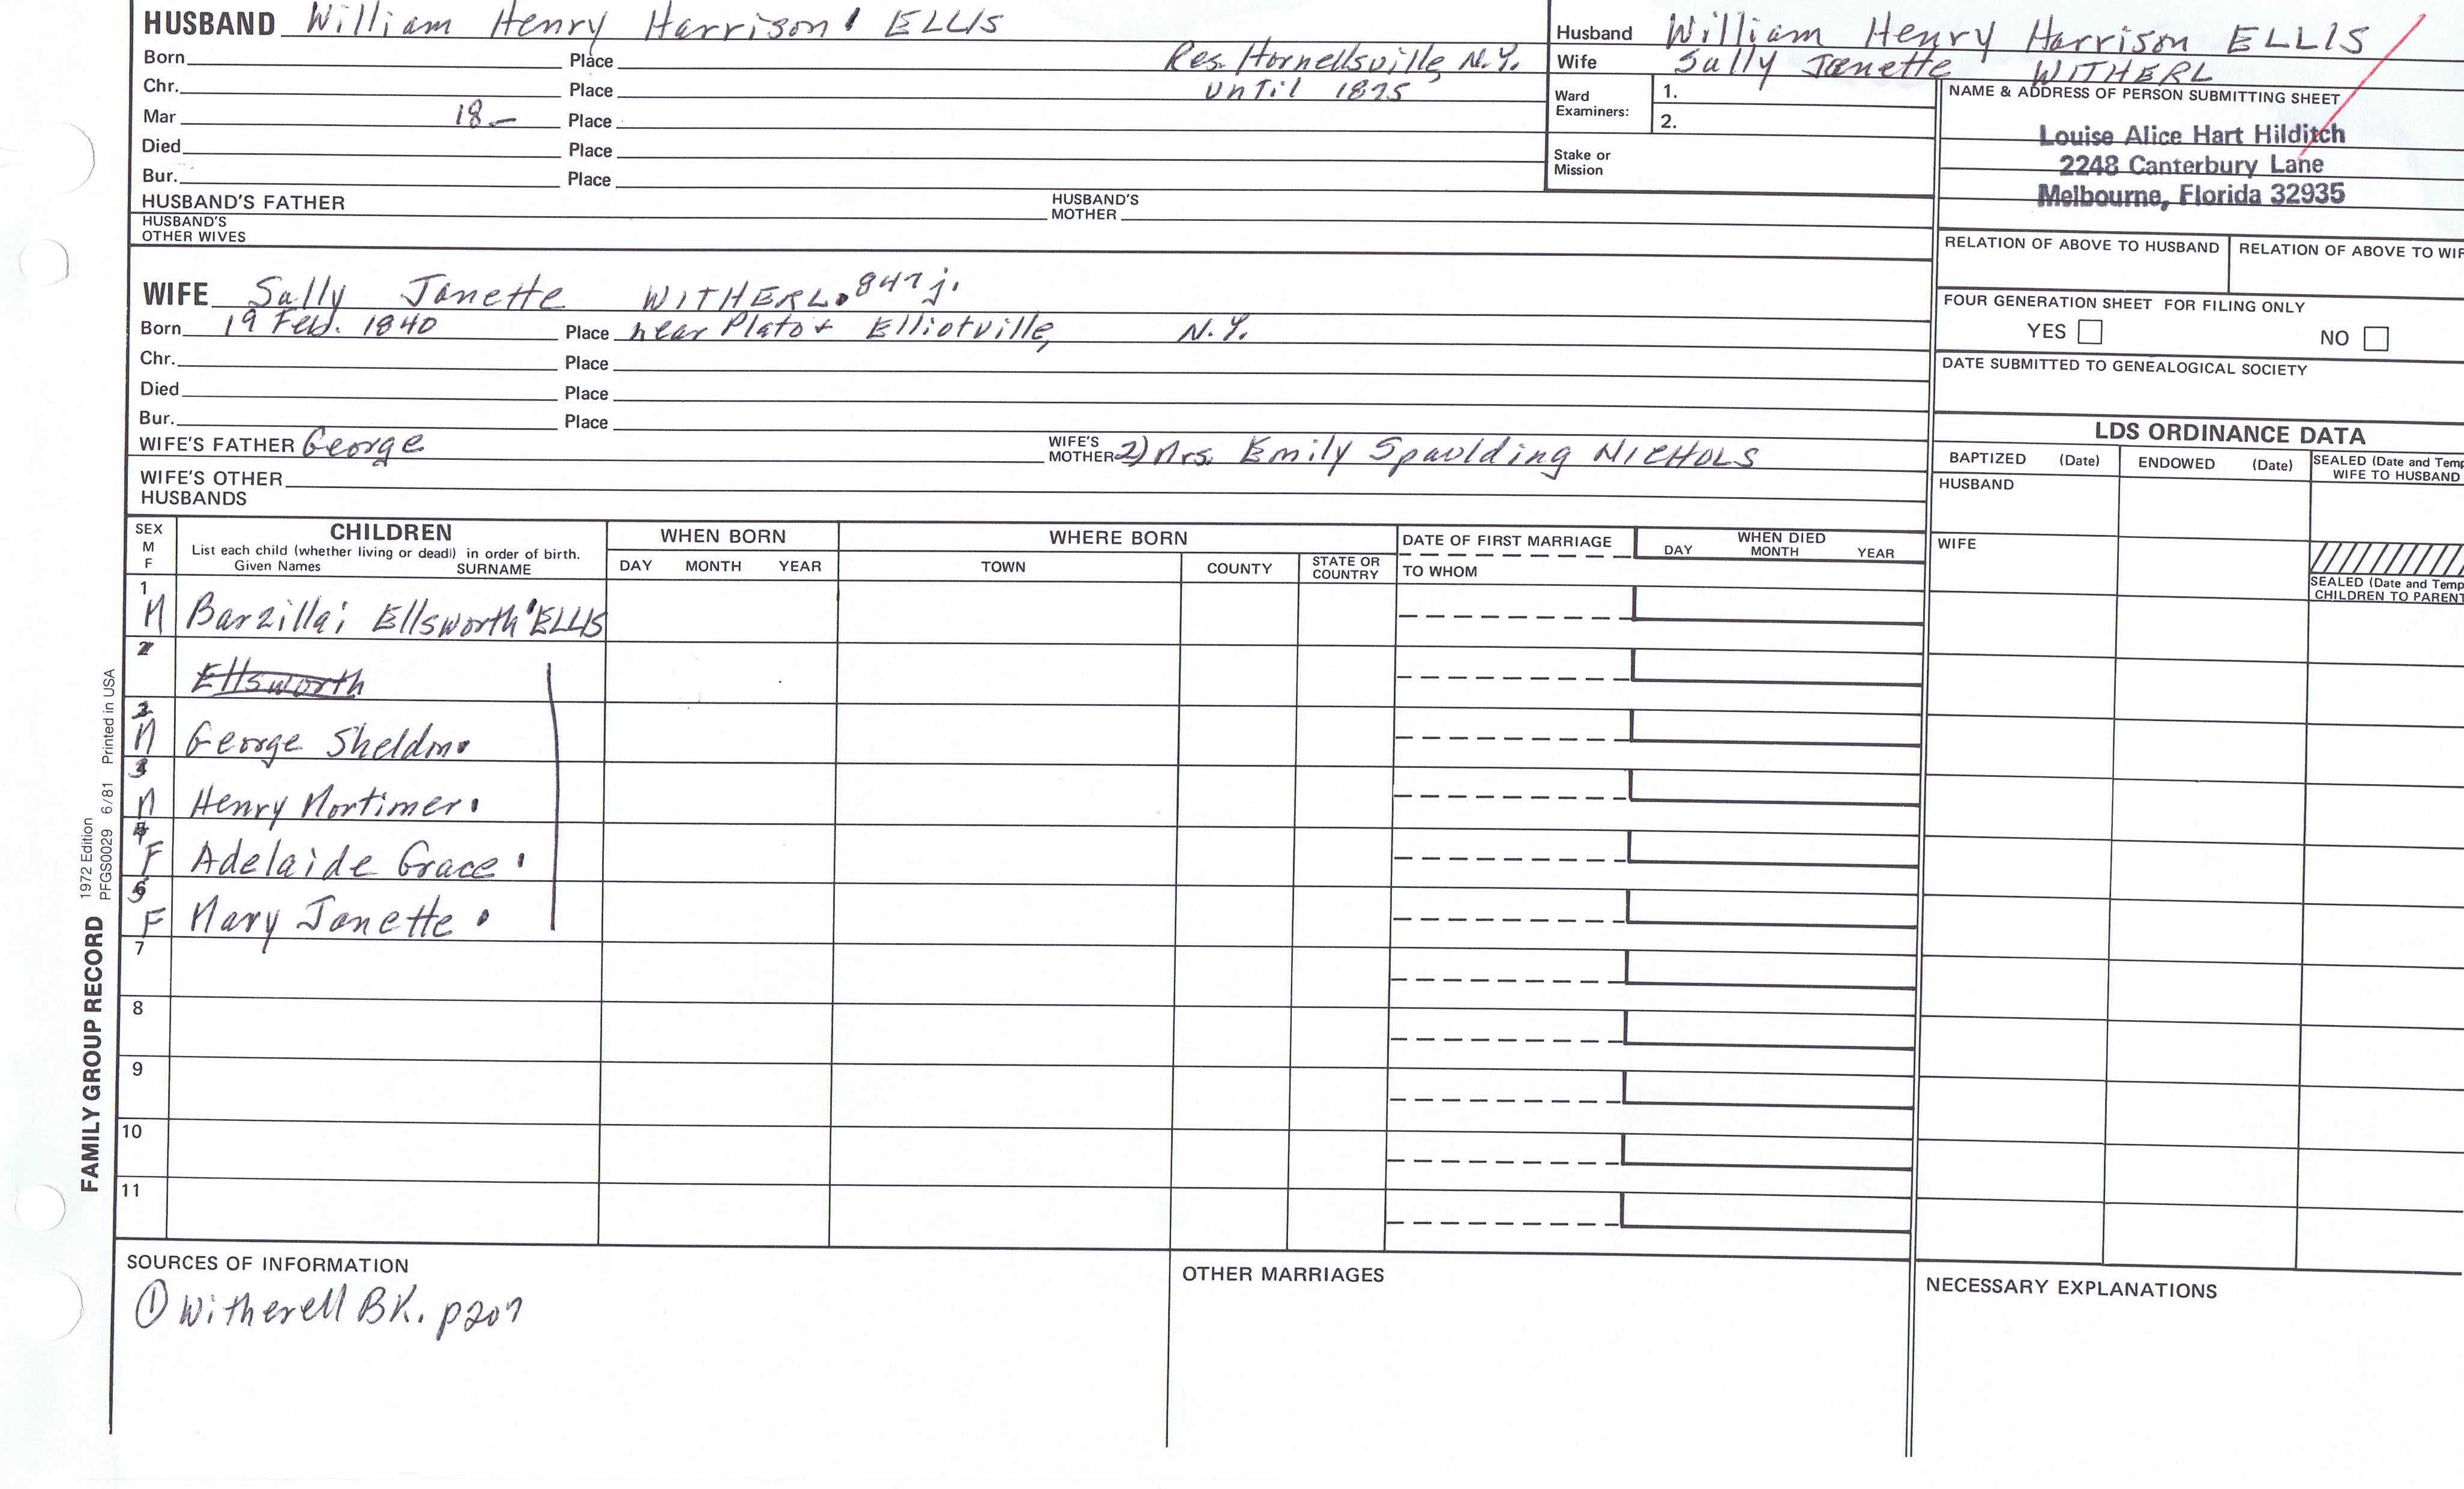 HUSBAND William Henry Harrison ELLIS
Born Place Res. Hornellsville, N.Y.
Chr. Place until 1875
Mar 18— Place
Died Place
Bur. Place
HUSBAND'S FATHER HUSBAND'S MOTHER
HUSBAND'S OTHER WIVES
Husband William Henry Harrison ELLIS
Wife Sally Janette WITHERL
Ward Examiners: 1.
2.
Stake or Mission
NAME & ADDRESS OF PERSON SUBMITTING SHEET
Louise Alice Hart Hilditch
2248 Canterbury Lane
Melbourne, Florida 32935
RELATION OF ABOVE TO HUSBAND RELATION OF ABOVE TO WIF
FOUR GENERATION SHEET FOR FILING ONLY
YES NO
DATE SUBMITTED TO GENEALOGICAL SOCIETY
WIFE Sally Janette WITHERL. 847 j.
Born 19 Feb. 1840 Place near Plato + Elliotville, N.Y.
Chr. Place
Died Place
Bur. Place
WIFE'S FATHER George WIFE'S MOTHER 2) Mrs. Emily Spaulding NICHOLS
WIFE'S OTHER HUSBANDS
LDS ORDINANCE DATA
BAPTIZED (Date) ENDOWED (Date) SEALED (Date and Temp
WIFE TO HUSBAND
HUSBAND
WIFE
SEALED (Date and Temp
CHILDREN TO PARENT
SEX M F
CHILDREN
List each child (whether living or dead) in order of birth.
Given Names SURNAME
WHEN BORN
DAY MONTH YEAR
WHERE BORN
TOWN COUNTY STATE OR COUNTRY
DATE OF FIRST MARRIAGE
TO WHOM
WHEN DIED
DAY MONTH YEAR
1 M Barzillai Ellsworth ELLIS
Ellsworth
2 M George Sheldon
3 M Henry Mortimer
4 F Adelaide Grace
5 F Mary Janette
7
8
9
10
11
FAMILY GROUP RECORD
1972 Edition
PFGS0029 6/81 Printed in USA
SOURCES OF INFORMATION
① Witherell BK. p207
OTHER MARRIAGES
NECESSARY EXPLANATIONS